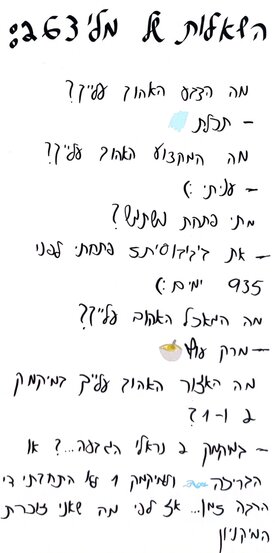 השאלות של מלי263:
מה הצבע האהוב עלייך?
- תכלת
מה המקצוע האהוב עלייך?
- עניתי :)
מתי פתחת משתמש?
- את ביגיבוסיתז פתחתי לפני
935 ימים :)
מה המאכל האהוב עלייך?
- מרק עוף
מה האזור האהוב עלייך במיקמק
2 ו-1?
- במקמק 2 נראלי הגבעה...? או
הבריכה ולמיקמק 1 לא התחברתי די
הרבה זמן... אז לפי מה שאני זוכרת
המיקניון